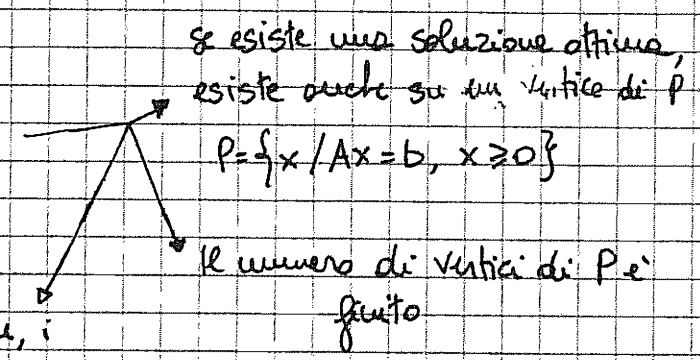 se esiste una soluzione ottima,
esiste anche su un vertice di P
P={x/Ax=b, x≥0}
il numero di vertici di P è
finito
i